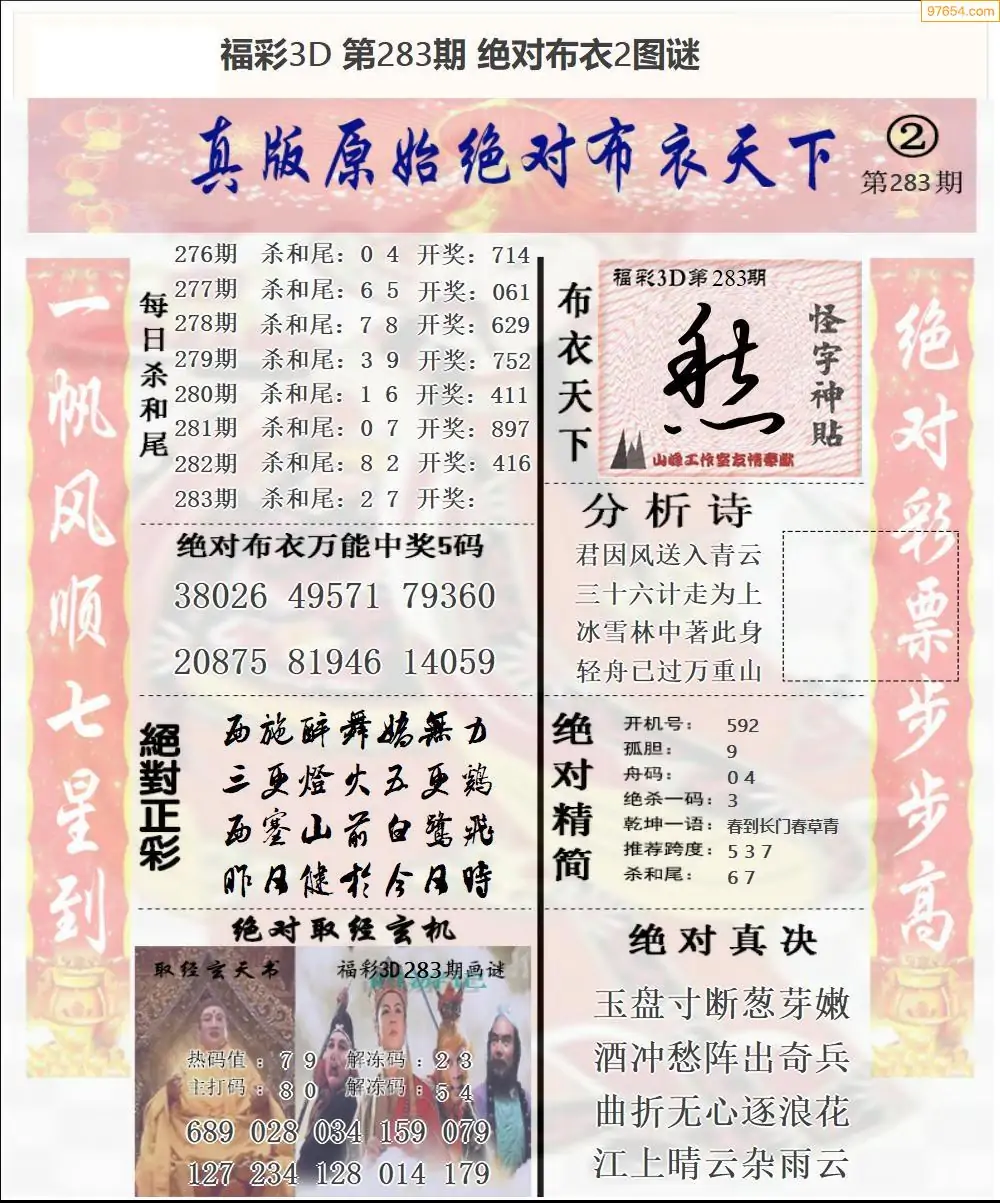 97654.com
福彩3D 第283期 绝对布衣2图谜
真版原始绝对布衣天下
②
第283期
一帆风顺七星到
每日杀和尾
276期 杀和尾：0 4 开奖：714
277期 杀和尾：6 5 开奖：061
278期 杀和尾：7 8 开奖：629
279期 杀和尾：3 9 开奖：752
280期 杀和尾：1 6 开奖：411
281期 杀和尾：0 7 开奖：897
282期 杀和尾：8 2 开奖：416
283期 杀和尾：2 7 开奖：
绝对布衣万能中奖5码
38026 49571 79360
20875 81946 14059
絕對正彩
西施醉舞嬌無力
三更燈火五更鷄
西塞山前白鷺飛
昨日健於今日時
绝对取经玄机
取经玄天书
福彩3D283期画谜
热码值：7 9 解冻码：2 3
主打码：8 0 解冻码：5 4
689 028 034 159 079
127 234 128 014 179
布衣天下
福彩3D第283期
愁
怪字神貼
山峰工作室友情奉献
分析诗
君因风送入青云
三十六计走为上
冰雪林中著此身
轻舟已过万重山
绝对精简
开机号： 592
孤胆： 9
舟码： 0 4
绝杀一码：3
乾坤一语：春到长门春草青
推荐跨度：5 3 7
杀和尾： 6 7
绝对真决
玉盘寸断葱芽嫩
酒冲愁阵出奇兵
曲折无心逐浪花
江上晴云杂雨云
绝对彩票步步高